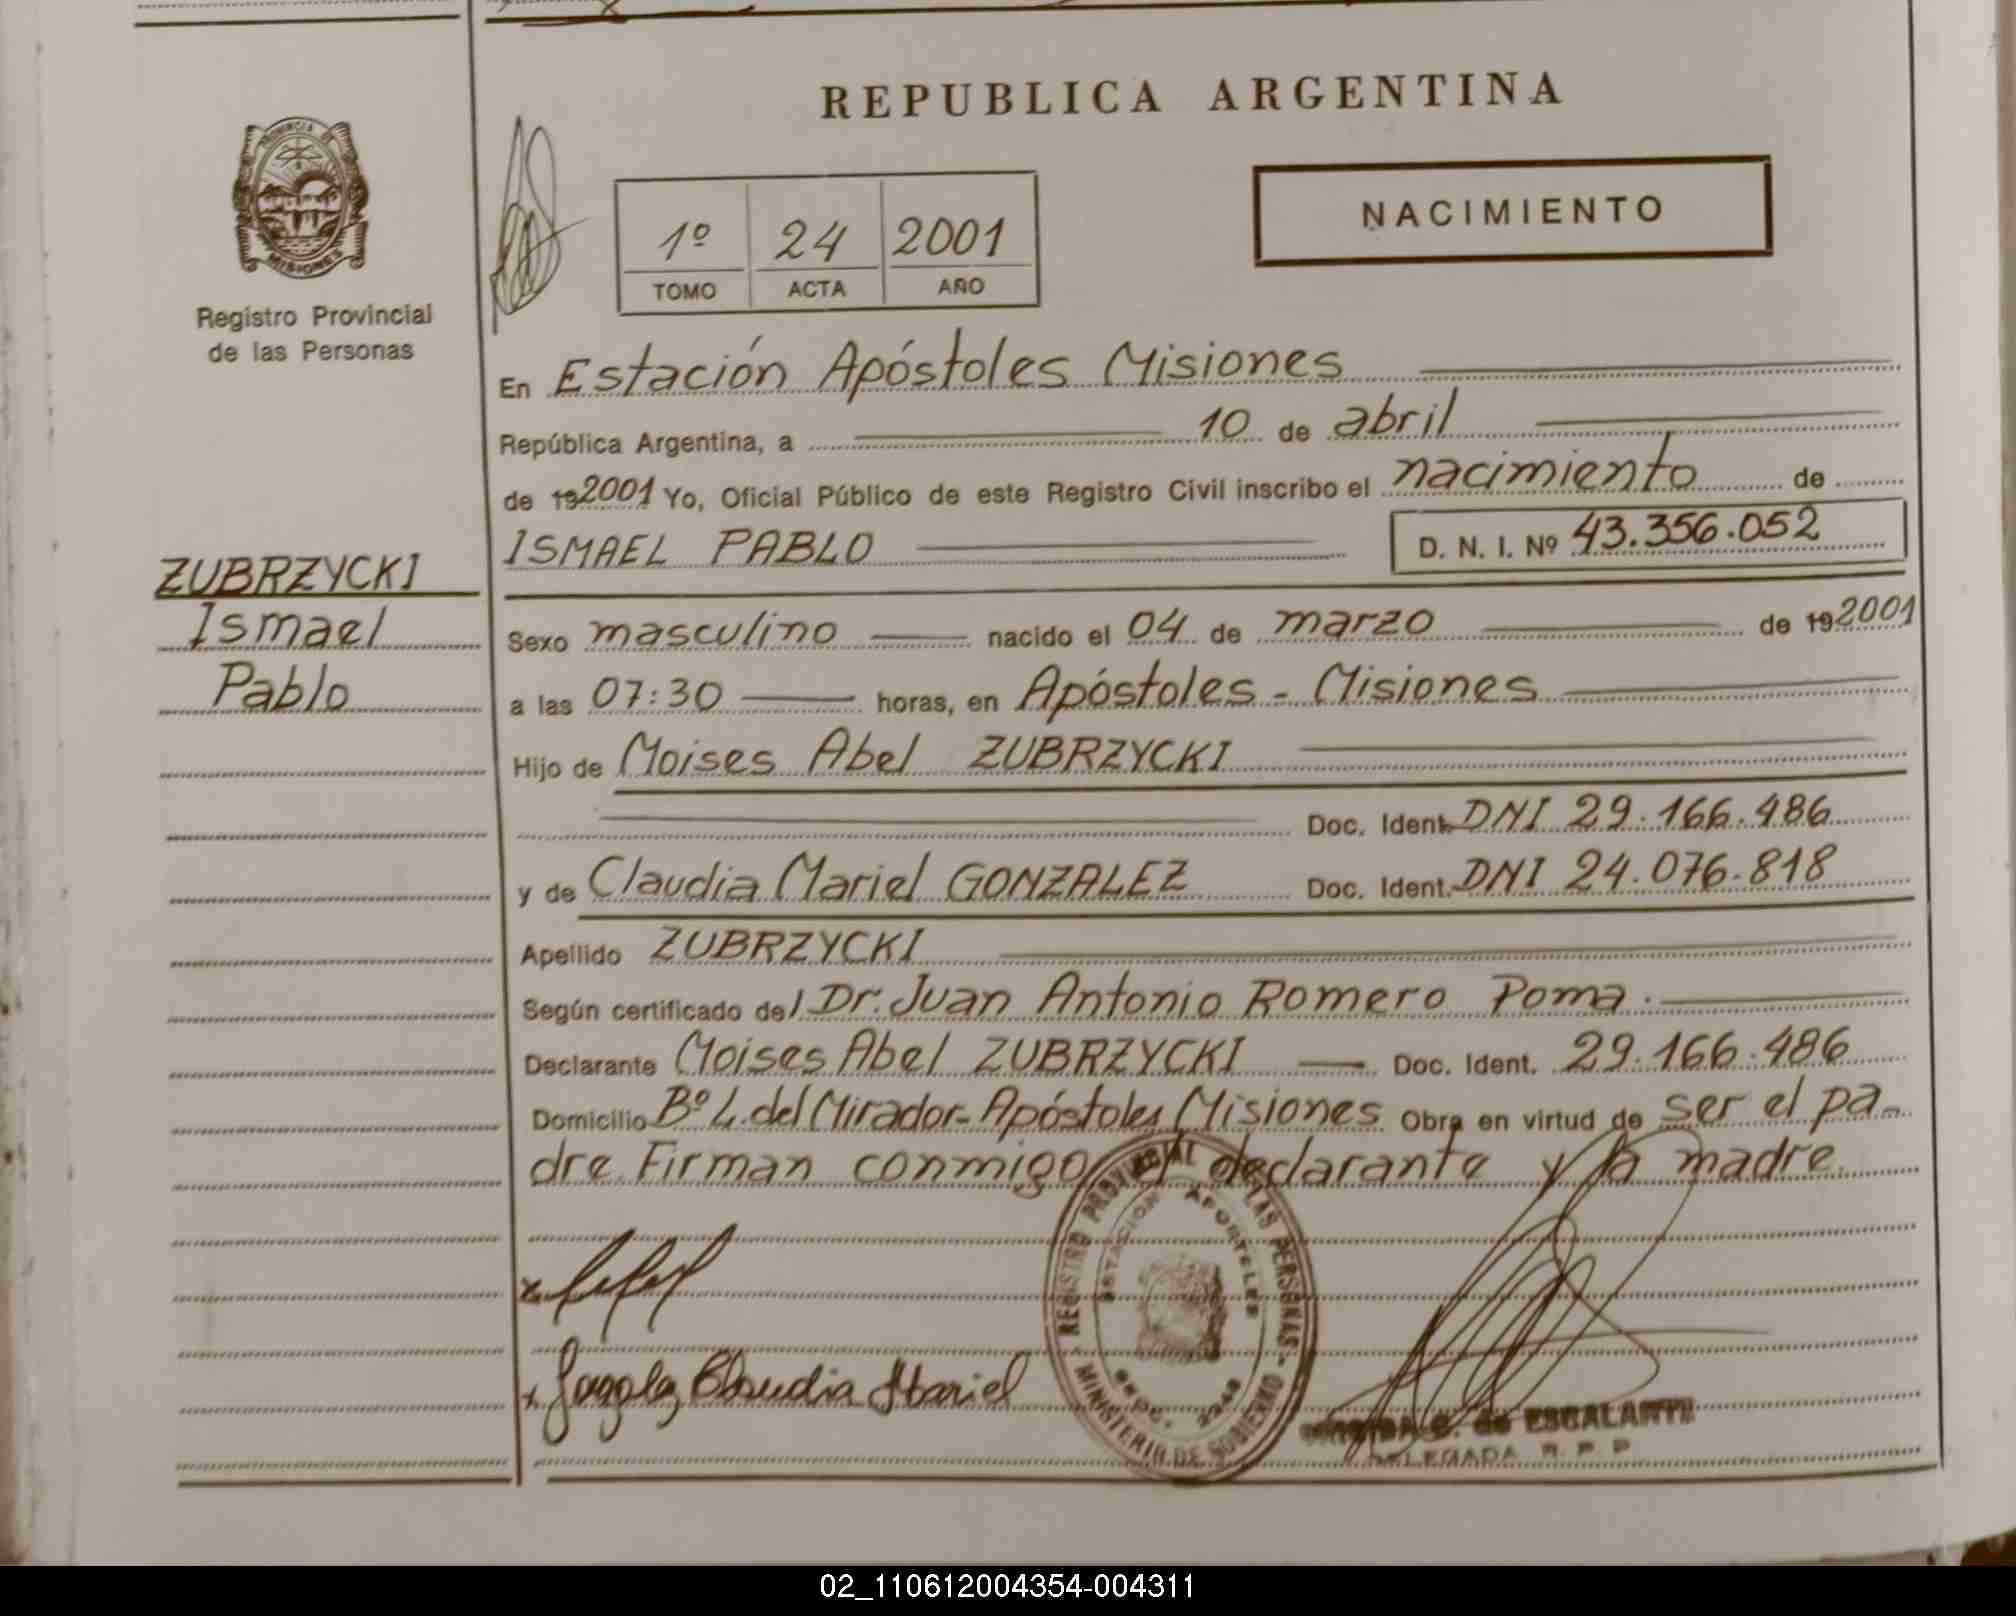 REPUBLICA ARGENTINA
PROVINCIA DE
MISIONES
Registro Provincial
de las Personas
1º 24 2001
TOMO ACTA AÑO
NACIMIENTO
En Estación Apóstoles Misiones
República Argentina, a 10 de abril
de 192001 Yo, Oficial Público de este Registro Civil inscribo el nacimiento de
ISMAEL PABLO D. N. I. Nº 43.356.052
ZUBRZYCKI
Ismael
Pablo
Sexo masculino nacido el 04 de marzo de 192001
a las 07:30 horas, en Apóstoles - Misiones
Hijo de Moises Abel ZUBRZYCKI
Doc. Ident. DNI 29.166.486
y de Claudia Mariel GONZALEZ Doc. Ident. DNI 24.076.818
Apellido ZUBRZYCKI
Según certificado del Dr. Juan Antonio Romero Poma.
Declarante Moises Abel ZUBRZYCKI Doc. Ident. 29.166.486
Domicilio Bº L. del Mirador - Apóstoles Misiones Obra en virtud de ser el pa-
dre. Firman conmigo el declarante y la madre.
REGISTRO PROVINCIAL DE LAS PERSONAS
ESTACION APOSTOLES
MINISTERIO DE GOBIERNO
Claudia Mariel
de ESCALANTE
DELEGADA R. P. P
02_110612004354-004311